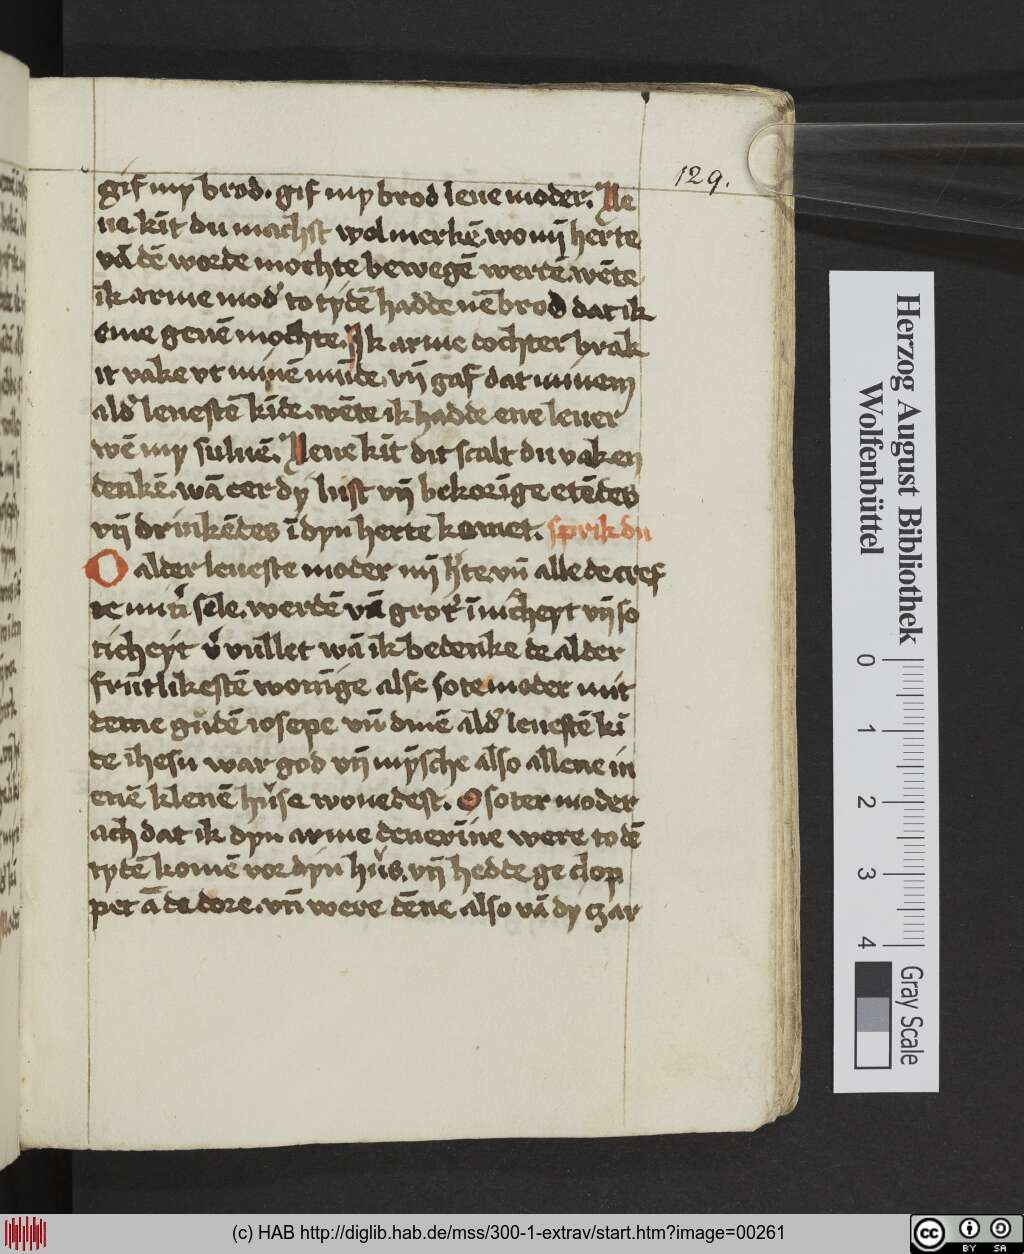 129.
gif my brod. gif my brod leue moder. Le
ue kīt du machst wol merkē. wo mȳ herte
vā dē worde mochte bewegē werdē. wēte
ik arme mod' to tydē hadde nē brod dat ik
eme geuē mochte. Ik arme dochter brak
it vake vt minē mūde. vn̄ gaf dat minem
ald' leuestē kīde. wēte ik hadde ene leuer
wē my suluē. Leue kīt dit scalt du vaken
denkē. wā eer dy lust vn̄ bekorīge etēdes
vn̄ drinkēdes ī dyn herte komet. sprik du
O alder leueste moder mȳ h'te vn̄ alle de cref
te mīn' sele. werdē vā grot' īnicheyt vn̄ so
ticheyt v'vullet wā ik bedenke de alder
frūtlikestē wonīge alse sote moder mit
deme gudē iosepe vn̄ dinē ald' leuestē kī
de ihesu war god vn̄ mȳsche also allene in
enē klenē huse wonedest. O soter moder
ach dat ik dyn arme denerīne were to dē
tydē komē vor dyn hus. vn̄ hedde ge clop
pet ā de dore. vn̄ were dēne also vā dy czar
Herzog August Bibliothek
Wolfenbüttel
0 1 2 3 4
Gray Scale
(c) HAB http://diglib.hab.de/mss/300-1-extrav/start.htm?image=00261
cc BY SA